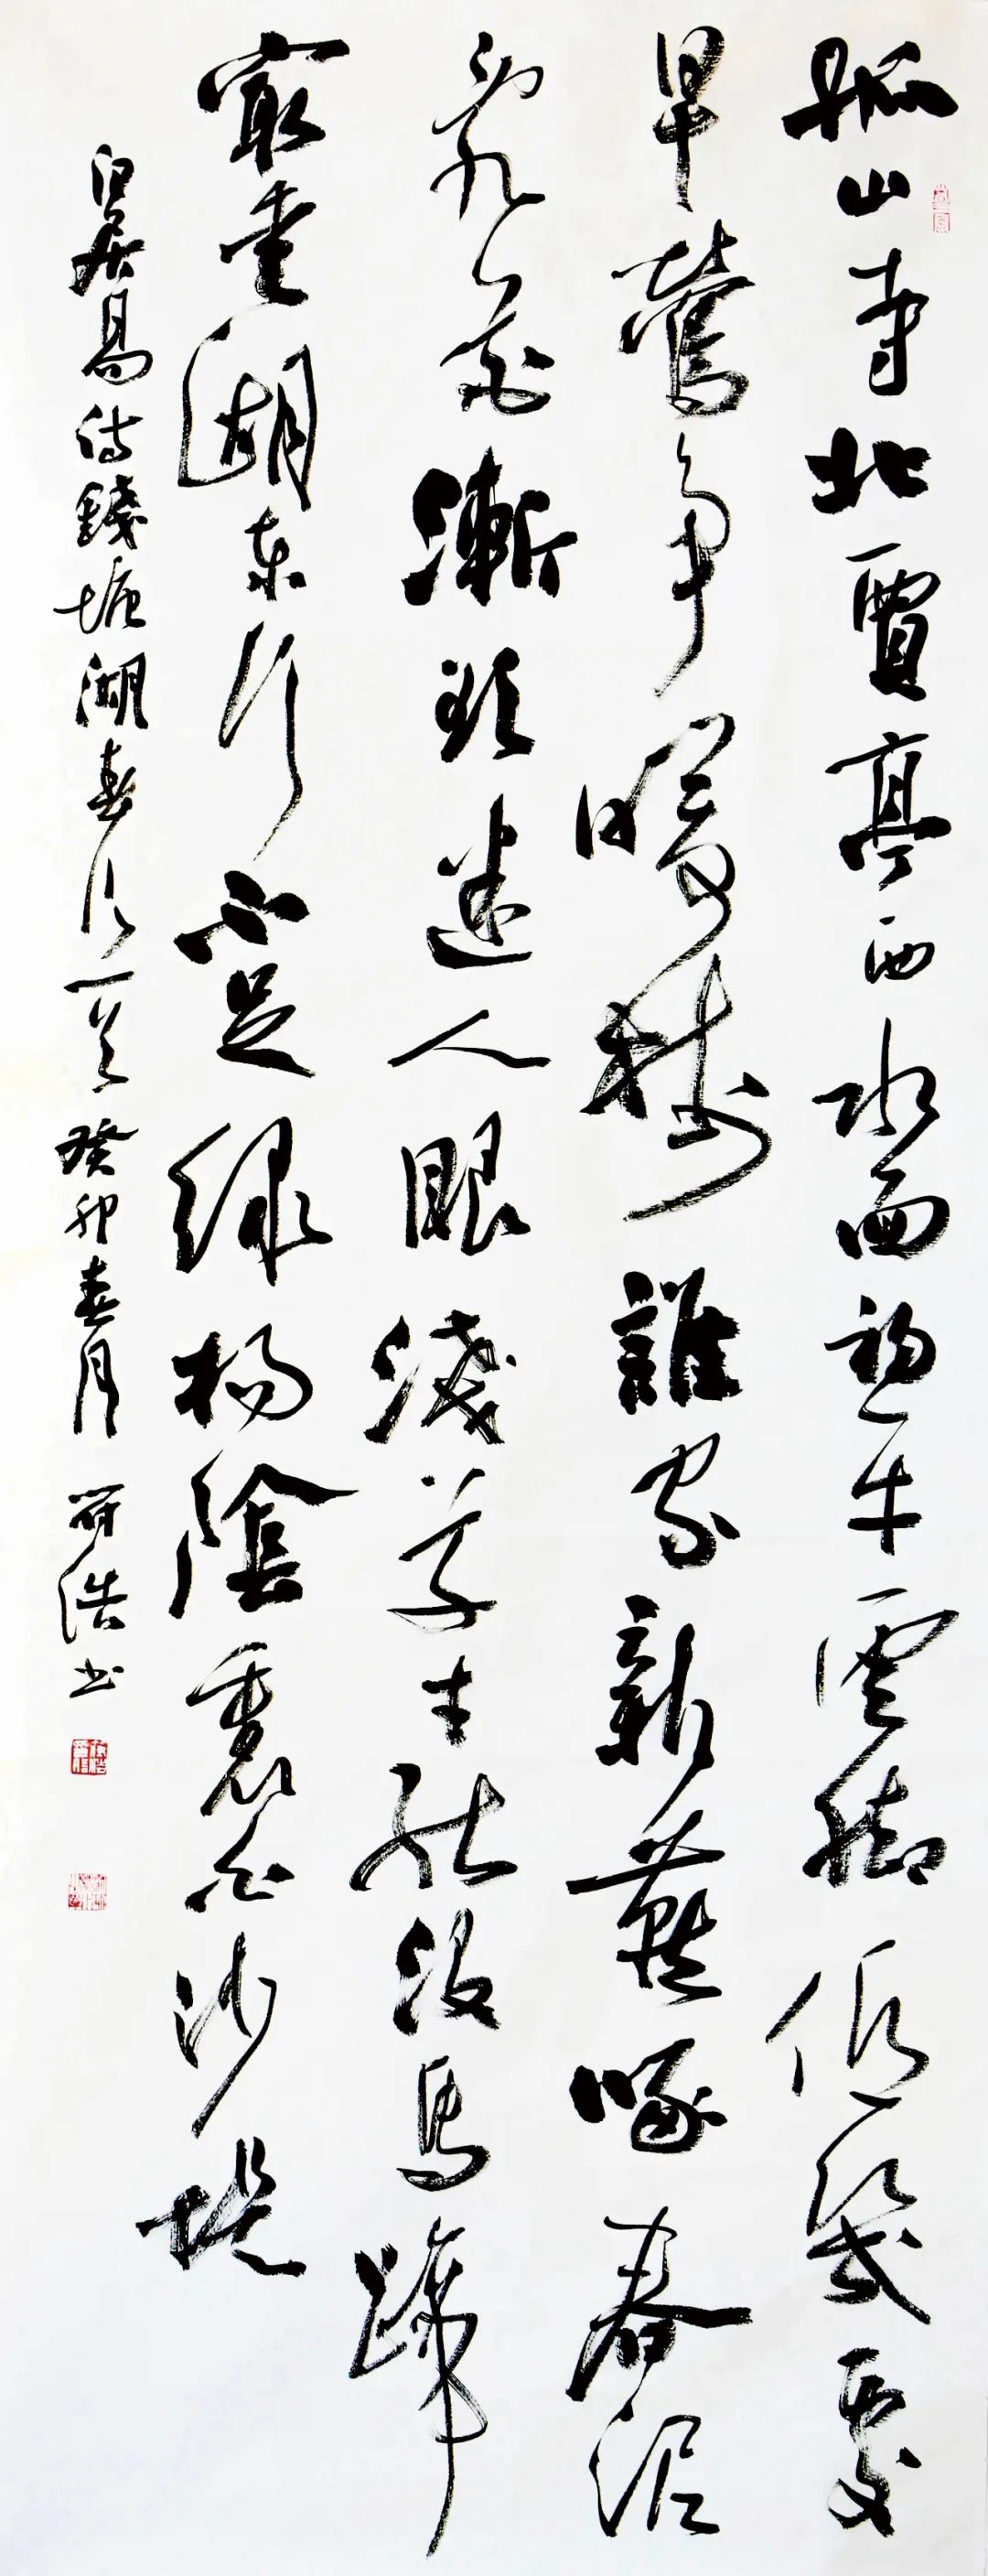 孤山寺北賈亭西水面初平雲腳低幾處
早鶯爭暖樹誰家新燕啄春泥
亂花漸欲迷人眼淺草才能沒馬蹄
最愛湖東行不足綠楊陰裏白沙堤
白居易詩錢塘湖春行一首 癸卯春月 浩书